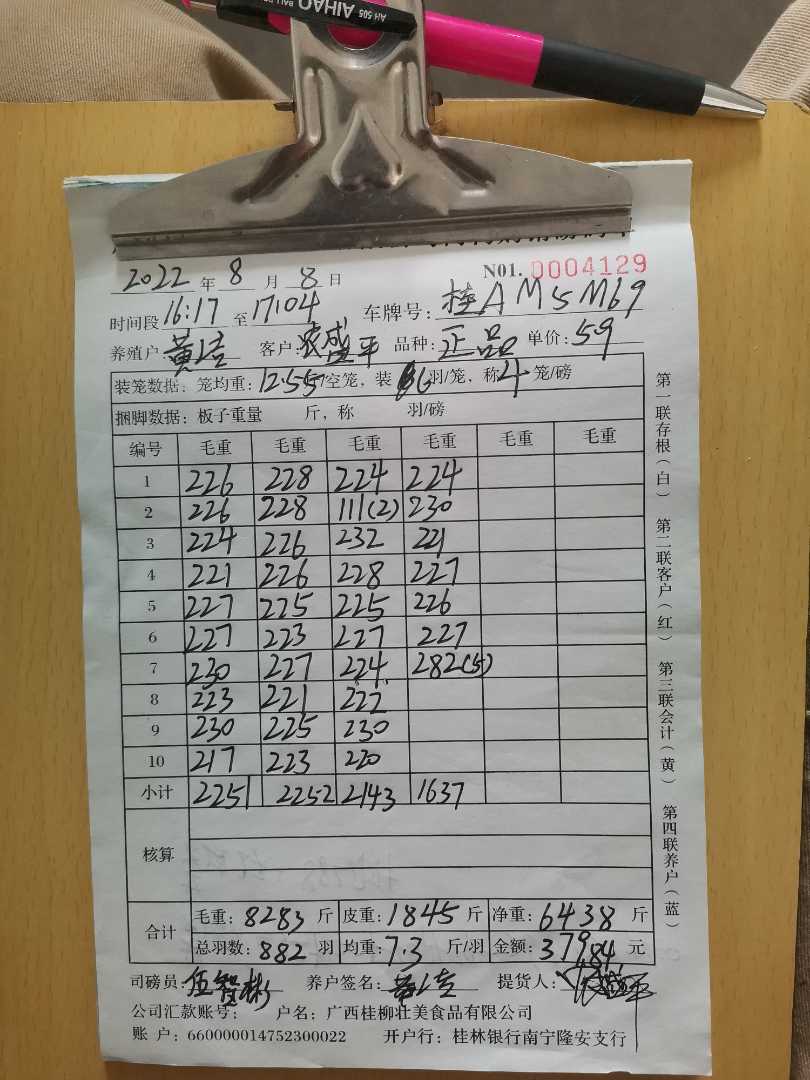 AIHAO BALL PEN
AH-505
N01. 0004129
2022 年 8 月 8 日
时间段 16:17 至 17:04 车牌号: 桂AM5M69
养殖户 黄 客户: 农盛平 品种: 正品 单价: 59
装笼数据: 笼均重: 12.55/空笼, 装 6 羽/笼, 称 4 笼/磅
捆脚数据: 板子重量 斤, 称 羽/磅
编号 毛重 毛重 毛重 毛重 毛重 毛重
1 226 228 224 224
2 226 228 111(2) 230
3 224 226 232 221
4 221 226 228 227
5 227 225 225 226
6 227 223 227 227
7 230 227 224 282(5)
8 223 221 222
9 230 225 230
10 217 223 220
小计 2251 2252 2143 1637
核算
合计 毛重: 8283 斤 皮重: 1845 斤 净重: 6438 斤
总羽数: 882 羽 均重: 7.3 斤/羽 金额: 37984 元
司磅员: 伍智彬 养户签名: 黄 提货人:
公司汇款账号: 户名: 广西桂柳壮美食品有限公司
账 户: 660000014752300022 开户行: 桂林银行南宁隆安支行
第一联存根（白） 第二联客户（红） 第三联会计（黄） 第四联养户（蓝）